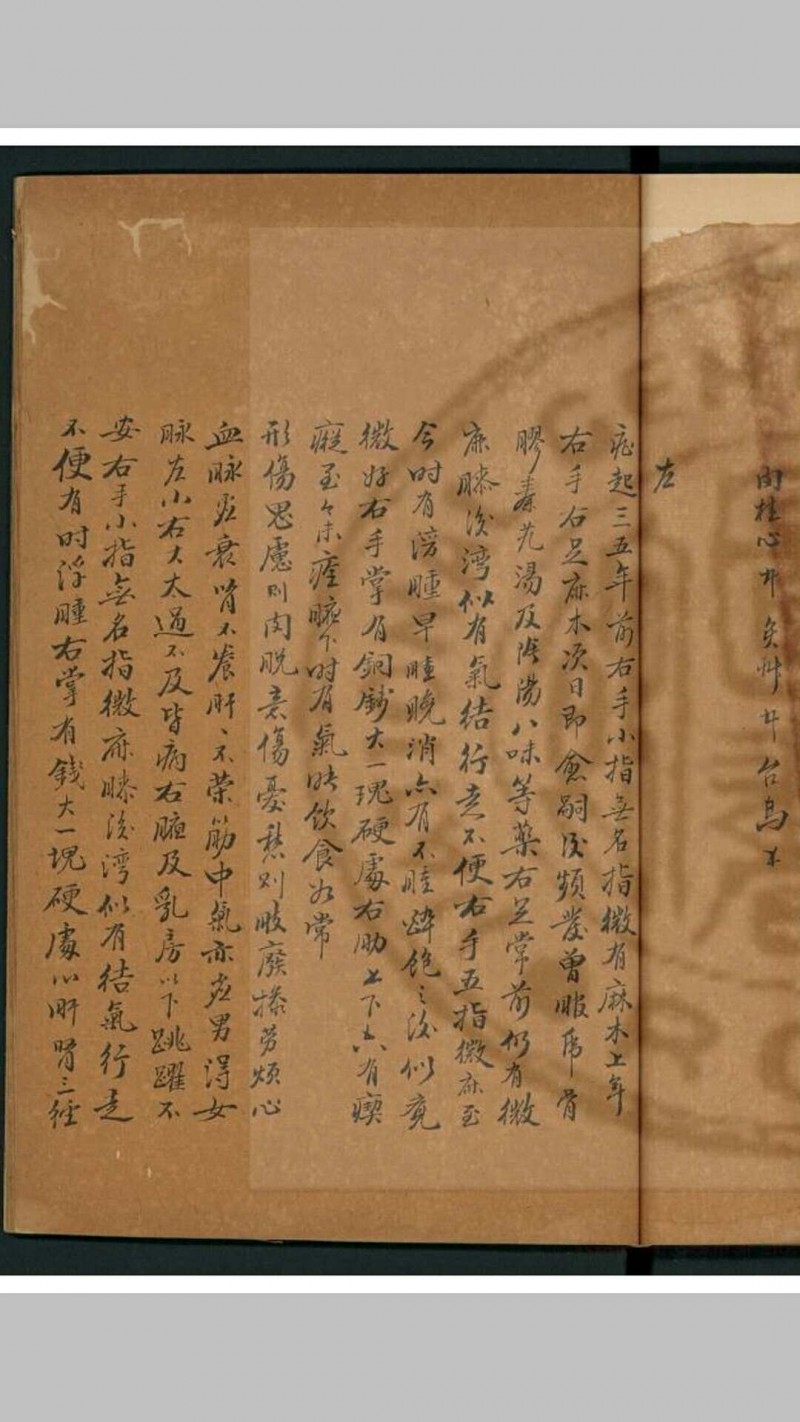 肉桂心 炙艸 台烏
左
症起三五年前右手小指無名指微有麻木上年
右手右足麻木次日即愈嗣後頻發曾服虎骨
膠秦艽湯及陰湯八味等藥右足常前仍有微
麻膝後灣似有氣結行走不便右手五指微麻至
今時有浮腫早腫晚消亦有不腫時飽之後似覺
微好右手掌有銅錢大一塊硬處右肋上下亦有
至 腋下時有氣 飲食如常
形傷思慮則肉脫意傷憂愁則肢廢操勞煩心
血脉虛衰腎不養肝肝不榮筋中氣亦虛男得女
脉左小右大太過不及皆病右腋及乳房以下跳躍不
安右手小指無名指微麻膝後灣似有結氣行走
不便有时浮腫右掌有錢大一塊硬處以肝腎三經